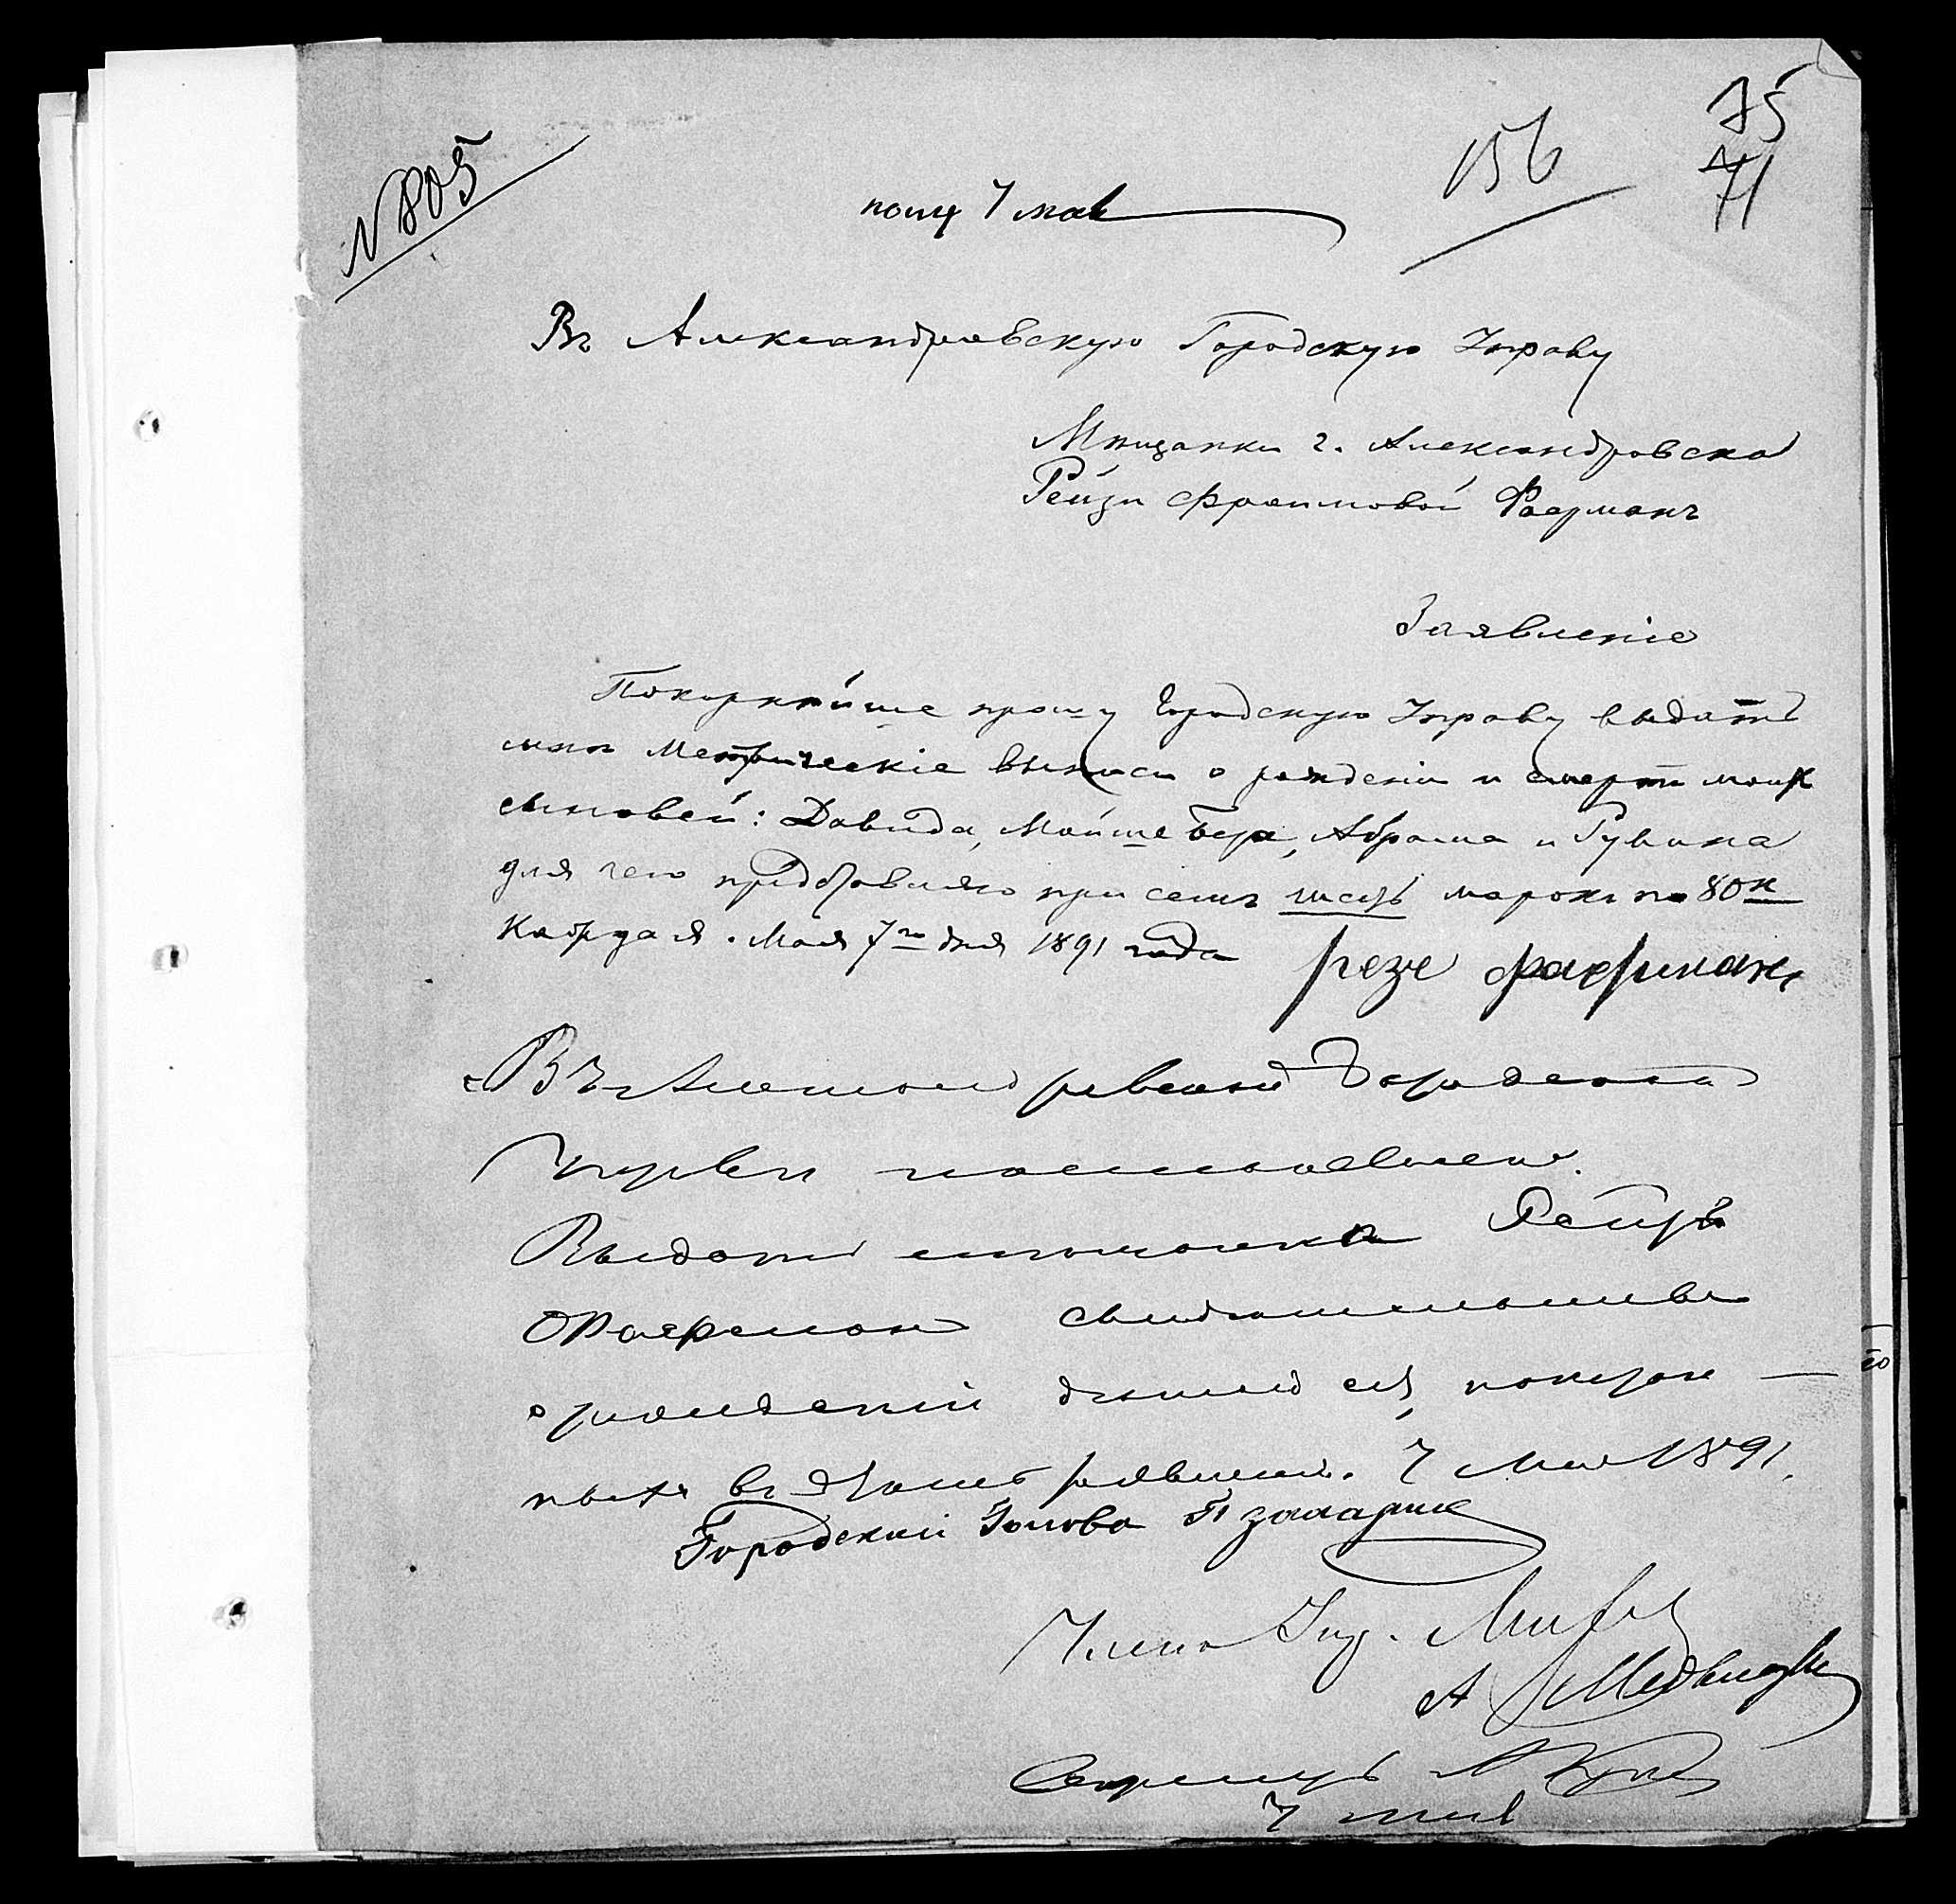 N 805
156
75
71
полу 7 мая
Въ Александровскую Городскую Управу
Мѣщанки г. Александровска
Рейзи Фроимовой Фаерманъ
Заявленіе
Покорнѣйше прошу Городскую Управу выдать
мнѣ Метрическіе выписи о рожденіи и смерти моихъ
сыновей: Давида, Мойше Бера, Абрама и Рувина
для чего представляю при семъ шесть марокъ по 80 к
каждая. Мая 7го дня 1891 года
резе фаерманъ
Въ Александровской Городской
Управѣ постановлено.
Выдать мѣщанкѣ Рейзѣ
Фаерманъ свидѣтельства
о рожденіи дѣтей ея, поимено-
ныхъ въ заявленіи. 7 Мая 1891.
Городской Голова П
Члены Упр.
А Медведев
Секретарь
7 мая